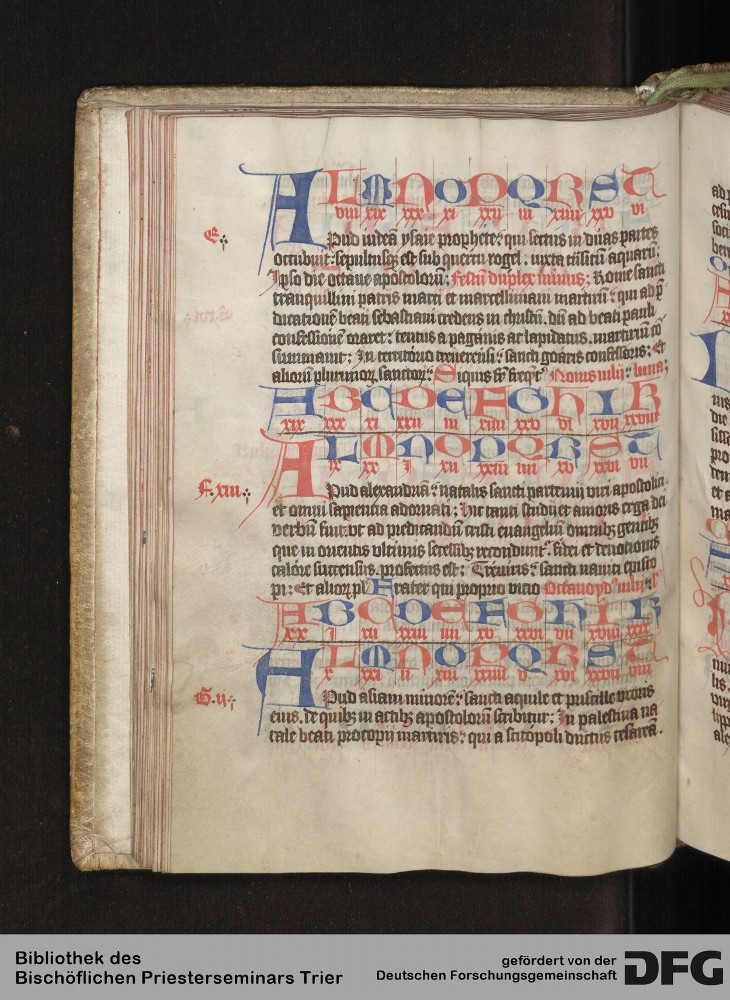 A L M N O P Q R S T
viii xix xxx xi xxii iii xiiii xxv vi
E
Pud iudeā ysaie prophete qui sectus in duas partes
occubuit: sepultusqʒ est sub quercu rogel iuxta trāsitū aquarū
Ipso die octaue apostolorū: Festū duplex minus; Rome sancti
tranquillini patris marci et marcelliniani martirū qui ad p̄
dicationē beati sebastiani credens in christū. dū ad beati pauli
confessionē oraret: tentus a paganis ac lapidatus. martiriū cō
summauit; In territorio treuerensi: sancti goaris confessoris; Et
aliorū plurimorū sanctorū: Siquis Nonis iulii luna;
A B C D E F G H I K
xix xxx xi xxii iii xiiii xxv vi xvii xxviii
A L M N O P Q R S T
ix xx i xii xxiii iiii xv xxvi vii
F. xiii
Pud alexandriā natalis sancti partenii viri apostolici
et omni sapientia adornati; Hic tanti studii et amoris erga dei
verbū fuit. vt ad predicandū cristi euangeliū omnibʒ gentibʒ
que in orientis vltimis secessibʒ recondunt fidei et deuotionis
calore succensus. profectus est; Treuiris sancti nanni episco
pi: Et aliorʒ pl Frater qui proprio vicio Octauo yd iulii
A B C D E F G H I K
xx i xii xxiii iiii xv xxvi vii xviii xxix
A L M N O P Q R S T
x xxi ii xiii xxiiii v xvi xxvii viii
G. ii
Pud asiam minorē: sancti aquile et priscille vxoris
eius. de quibʒ in actibʒ apostolorū scribitur; In palestina na
tale beati procopii martiris: qui a scitopoli ductus cesareā.
Bibliothek des
Bischöflichen Priesterseminars Trier
gefördert von der
Deutschen Forschungsgemeinschaft
DFG